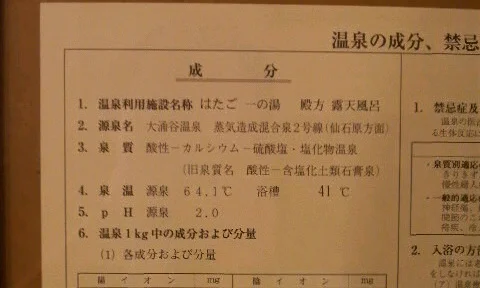 温泉の成分、禁忌
成 分
1. 温泉利用施設名称 はたご 一の湯 殿方 露天風呂
2. 源泉名 大涌谷温泉 蒸気造成混合泉2号線(仙石原方面)
3. 泉 質 酸性－カルシウム－硫酸塩・塩化物温泉
(旧泉質名 酸性－含塩化土類石膏泉)
4. 泉 温 源泉 64.1℃ 浴槽 41℃
5. pH 源泉 2.0
6. 温泉1kg中の成分および分量
(1) 各成分および分量
陽イオン mg 陰イオン mg
1. 禁忌症及
温泉の
る生体反応
・泉質別適応
きりきず
慢性婦人
・一般的適応
神経痛、
関節のこ
2. 入浴の方
温泉には
をしなければ
(ア)